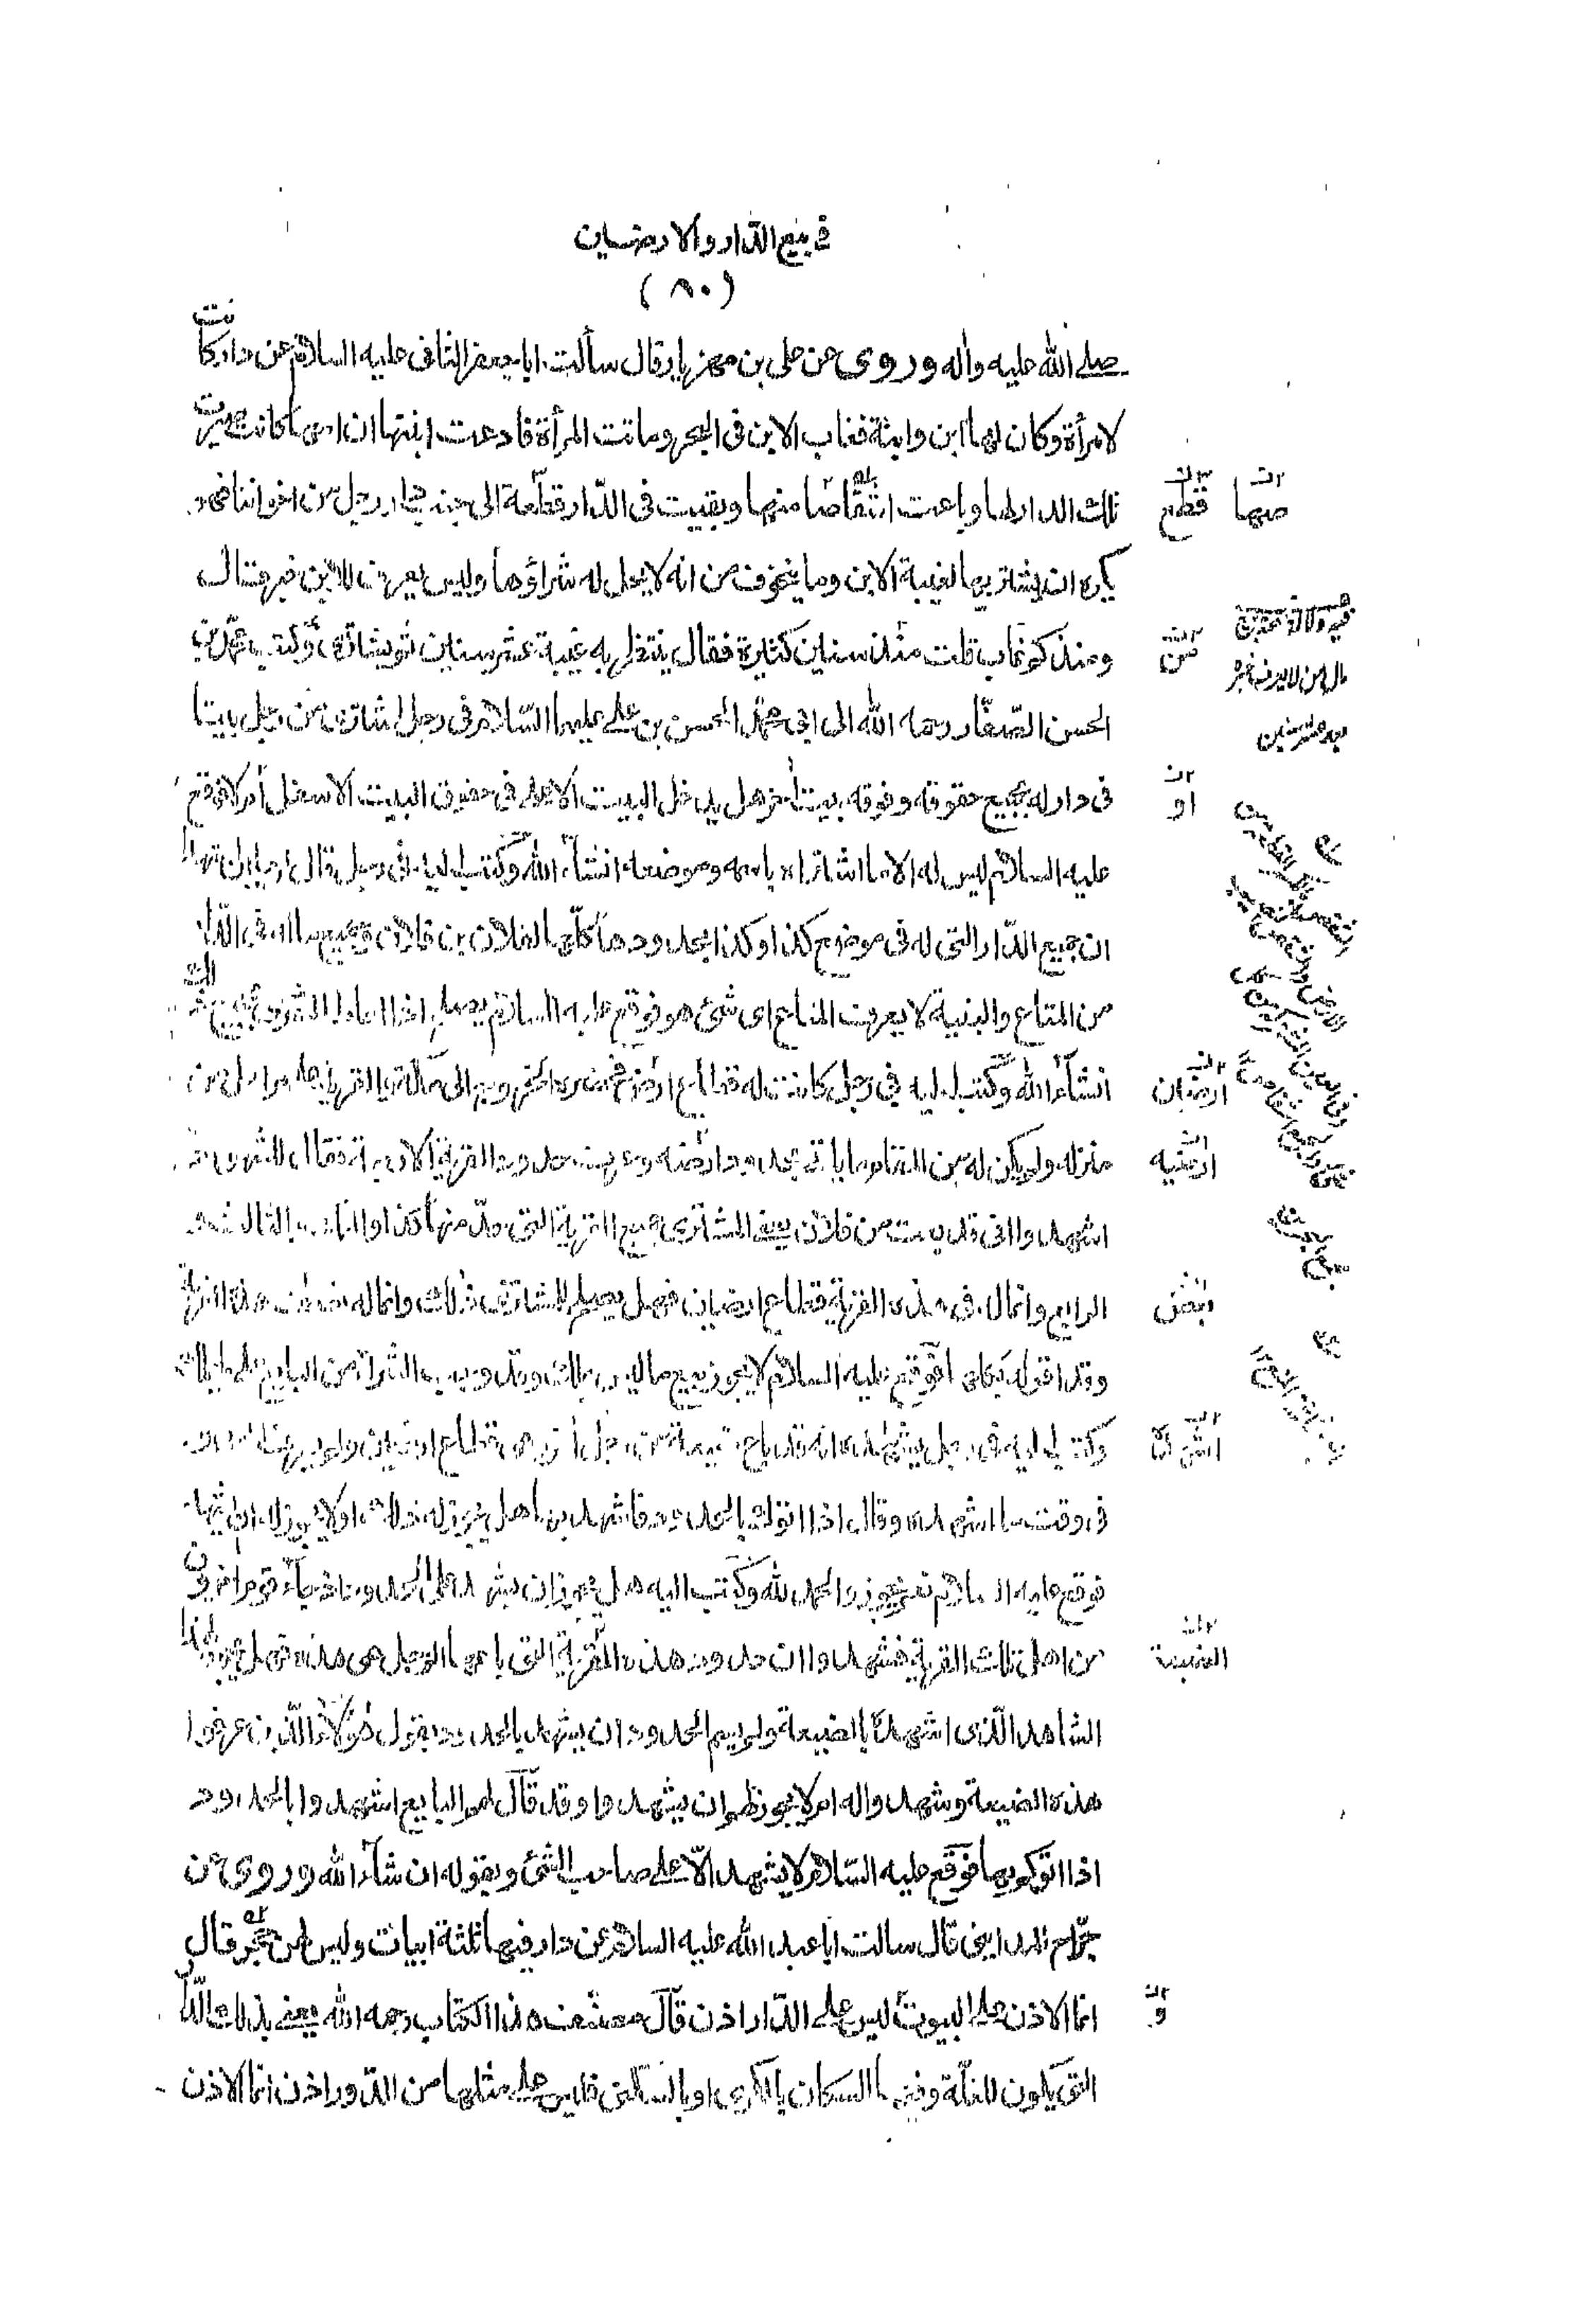 في بيع الدار والارضين
(٨٠)
صلى الله عليه واله وروى عن على بن مهزيار قال سألت ابا جعفر الثانى عليه السلام عن دار كانت
لامرأة وكان لها ابن وابنة فغاب الابن فى البحر وماتت المرأة فادعت ابنتها ان امها كانت صيرت
تلك الدار لها وباعت اشقاصا منها وبقيت فى الدار قطعة الى جنب دار رجل من اخواننا فهو
يكره ان يشتريها لغيبة الابن وما يتخوف من انه لا يحل له شراؤها وليس يعرف للابن خبر فقال
ومنذ كم غاب قلت منذ سنين كثيرة فقال ينتظر به غيبة عشر سنين ثم يشترى وكتب محمد بن
الحسن الصفار رحمه الله الى ابى محمد الحسن بن على عليهما السلام فى رجل اشترى من رجل بيتا
فى دار له بجميع حقوقه وفوقه بيت اخر هل يدخل البيت الاعلى فى حقوق البيت الاسفل أم لا فوقع
عليه السلام ليس له الا ما اشتراه باسمه وموضعه انشاء الله وكتب اليه فى رجل قال لرجلين اشهدا
ان جميع الدار التى له فى موضع كذا وكذا بحدودها كلها لفلان بن فلان وجميع ماله فى الدار
من المتاع والبنية لا يعرف المتاع اى شئ هو فوقع عليه السلام يصلح اذا احاط الشراء بجميع ذلك
انشاء الله وكتب اليه فى رجل كانت له قطاع ارضين فحضره الخروج الى مكة والقرية على مراحل من
منزله ولم يكن له من المقام ما ياتى بحدود ارضه وعرف حدود القرية الاربعة فقال للشهود
اشهدوا انى قد بعت من فلان يعنى المشترى جميع القرية التى حد منها كذا والثانى والثالث
والرابع وانما له فى هذه القرية قطاع ارضين فهل يصلح للمشترى ذلك وانما له بعض هذه القرية
وقد اقر له بكلها فوقع عليه السلام لا يجوز بيع ما ليس يملك وقد وجب الشراء من البايع على ما يملك
وكتب اليه فى رجل يشهده انه قد باع ضيعة من رجل آخر وهى قطاع ارضين ولم يعرف الحدود
فى وقت ما اشهده وقال اذا اتوك بالحدود فاشهد بها هل يجوز له ذلك او لا يجوز له ان يشهد
فوقع عليه السلام نعم يجوز والحمد لله وكتب اليه هل يجوز ان يشهد على الحدود اذا جاء قوم اخرون
من اهل تلك القرية فشهدوا ان حدود هذه القرية التى باعها الرجل هى هذه فهل يجوز لهذا
الشاهد الذى اشهده بالضيعة ولم يسم الحدود ان يشهد بالحدود بقول هؤلاء الذين عرفوا
هذه الضيعة وشهدوا له ام لا يجوز لهم ان يشهدوا وقد قال لهم البايع اشهدوا بالحدود
اذا اتوكم بها فوقع عليه السلام لا يشهد الا على صاحب الشئ وبقوله ان شاء الله وروى عن
جراح المدايني قال سالت ابا عبد الله عليه السلام عن دار فيها ثلثة ابيات وليس لهن حجر قال
انما الاذن على البيوت ليس على الدار اذن قال مصنف هذا الكتاب رحمه الله يعنى بذلك الدار
التى تكون للغلة وفيها السكان بالكرى او بالسكنى فليس على مثلها من الدور اذن انما الاذن
منها
قطع
من
بعد عشر سنين
او
ارضين
ارضيه
بعض
الشراء
الضيعة
و